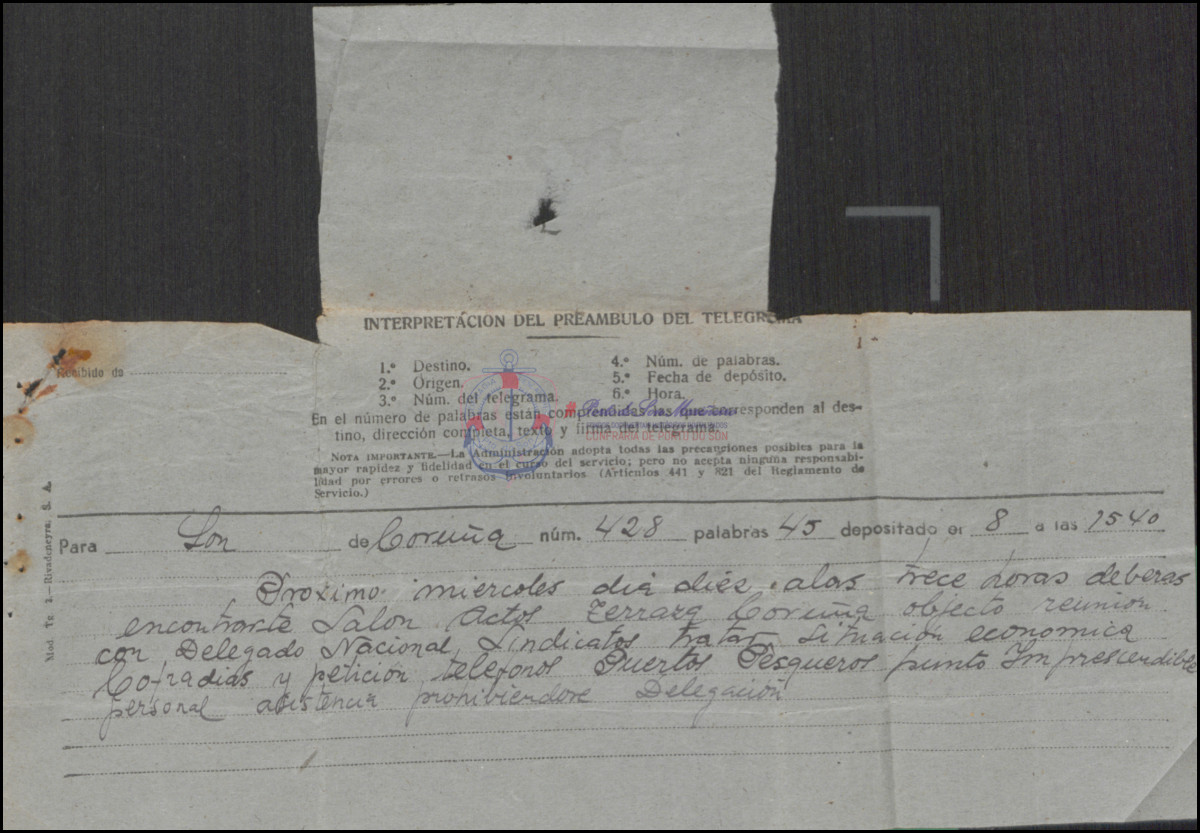 INTERPRETÁCION DEL PREAMBULO DEL TELEGRAMA
1.º Destino.
2.º Origen.
3.º Núm. del telegrama.
4.º Núm. de palabras.
5.º Fecha de depósito.
6.º Hora.
En el número de palabras están comprendidas las que corresponden al des-
tino, dirección completa, texto y firma del telegrama.
CONFRARIA DE PORTO DO SON
NOTA IMPORTANTE.—La Administración adopta todas las precauciones posibles para la
mayor rapidez y fidelidad en el curso del servicio; pero no acepta ninguna responsabi-
lidad por errores o retrasos involuntarios (Artículos 441 y 821 del Reglamento de
Servicio.)
Recibido de
Mod. Te 1.—Rivadeneyra, S. A.
Para Son de Coruña núm. 428 palabras 45 depositado el 8 a las 1540
Proximo miercoles dia diez alas trece horas deberas
encontrarte Salon Actos Terraza Coruña objecto reunion
con Delegado Nacional Sindicatos tratar Situación economica
Cofradias y petición telefonos Puertos Pesqueros punto Imprescindible
personal asistencia prohibiendose Delegación